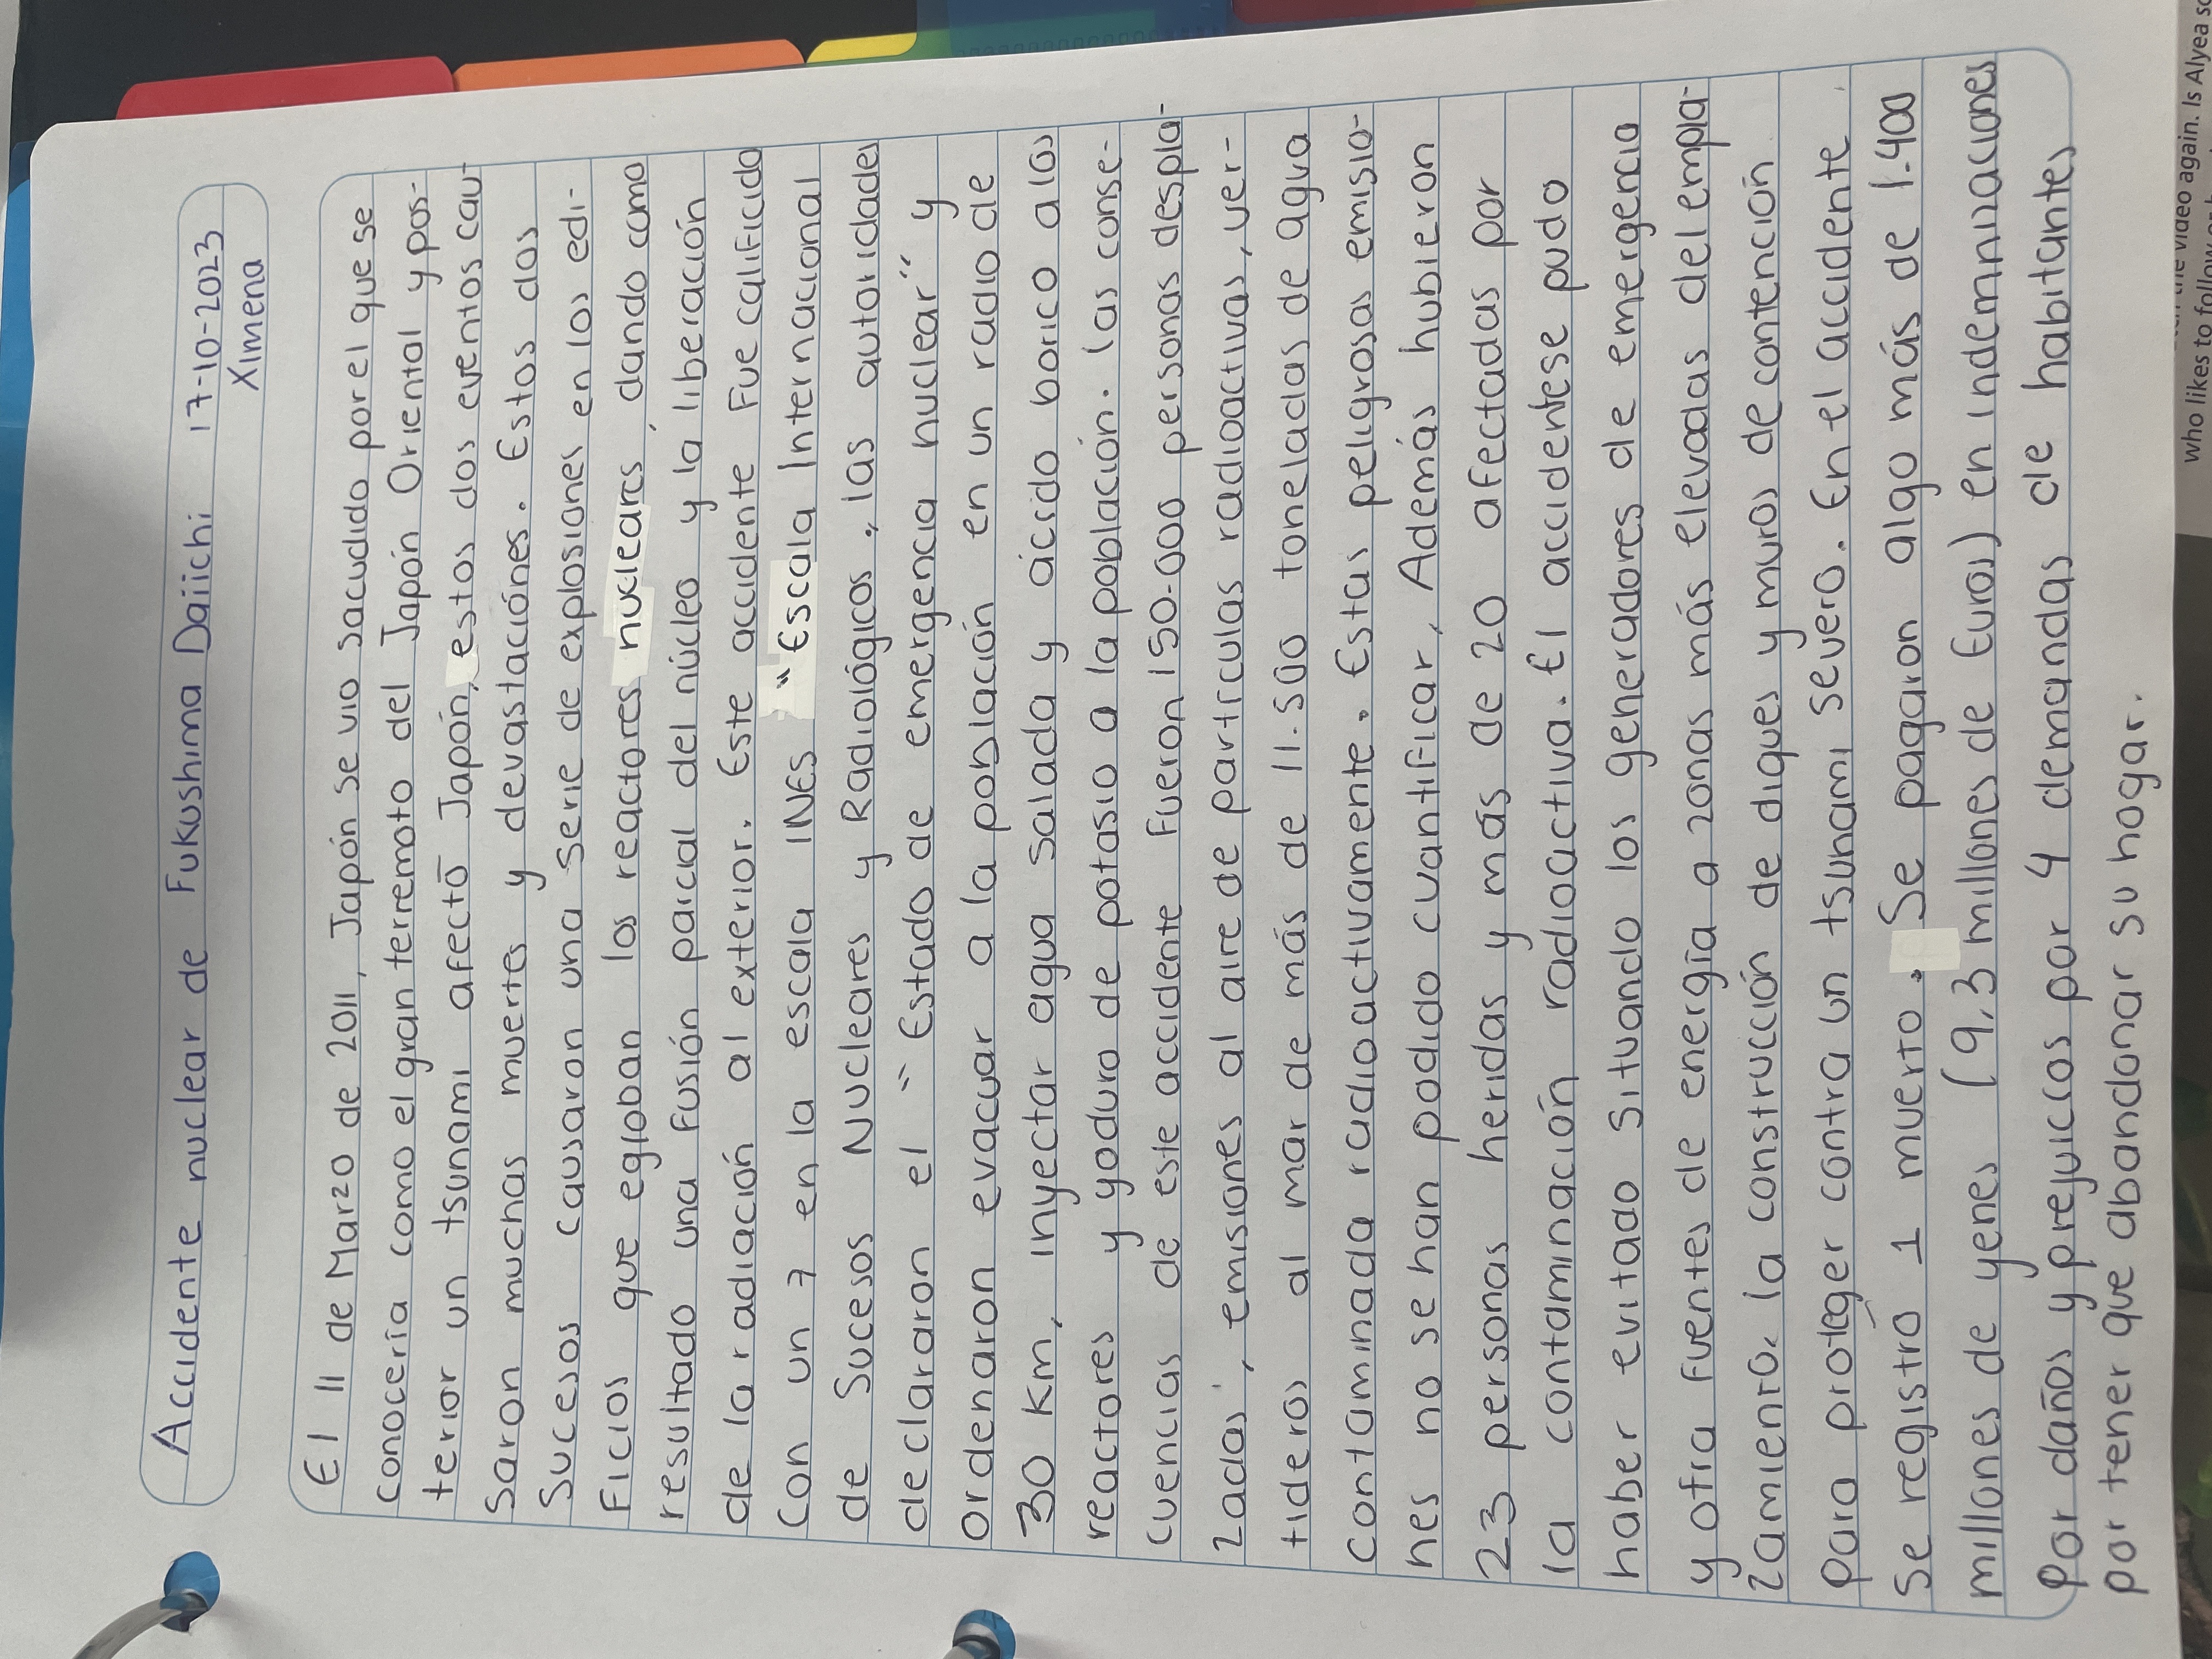 Accidente nuclear de Fukushima Daiichi 17-10-2023
Ximena
El 11 de Marzo de 2011, Japón se vio sacudido por el que se
conocería como el gran terremoto del Japón Oriental y pos-
terior un tsunami afectó Japón, estos dos eventos cau-
saron muchas muertes y devastaciónes. Estos dos
sucesos causaron una serie de explosiones en los edi-
ficios que egloban los reactores nucleares, dando como
resultado una fusión parcial del núcleo y la liberación
de la radiación al exterior. Este accidente fue calificado
con un 7 en la escala INES "Escala Internacional
de Sucesos Nucleares y Radiológicos, las autoridades
declararon el "Estado de emergencia nuclear" y
ordenaron evacuar a la población en un radio de
30 km, inyectar agua salada y ácido bórico a los
reactores y yoduro de potasio a la población. las conse-
cuencias de este accidente fueron 150.000 personas despla-
zadas, emisiones al aire de partículas radioactivas, ver-
tideros al mar de más de 11.500 toneladas de agua
contaminada radioactivamente. Estas peligrosas emisio-
nes no se han podido cuantificar, Además hubieron
23 personas heridas y más de 20 afectadas por
la contaminación radioactiva. El accidentese pudo
haber evitado situando los generadores de emergencia
y otra fuentes de energía a zonas más elevadas del empla-
zamiento. la construcción de diques y muros de contención
para proteger contra un tsunami severo. En el accidente
se registró 1 muerto. Se pagaron algo más de 1.400
millones de yenes (9,3 millones de Euros) en indemnizaciones
Por daños y prejuicios por 4 demandas de habitantes
por tener que abandonar su hogar.
who likes to follow
video again. Is Alyea